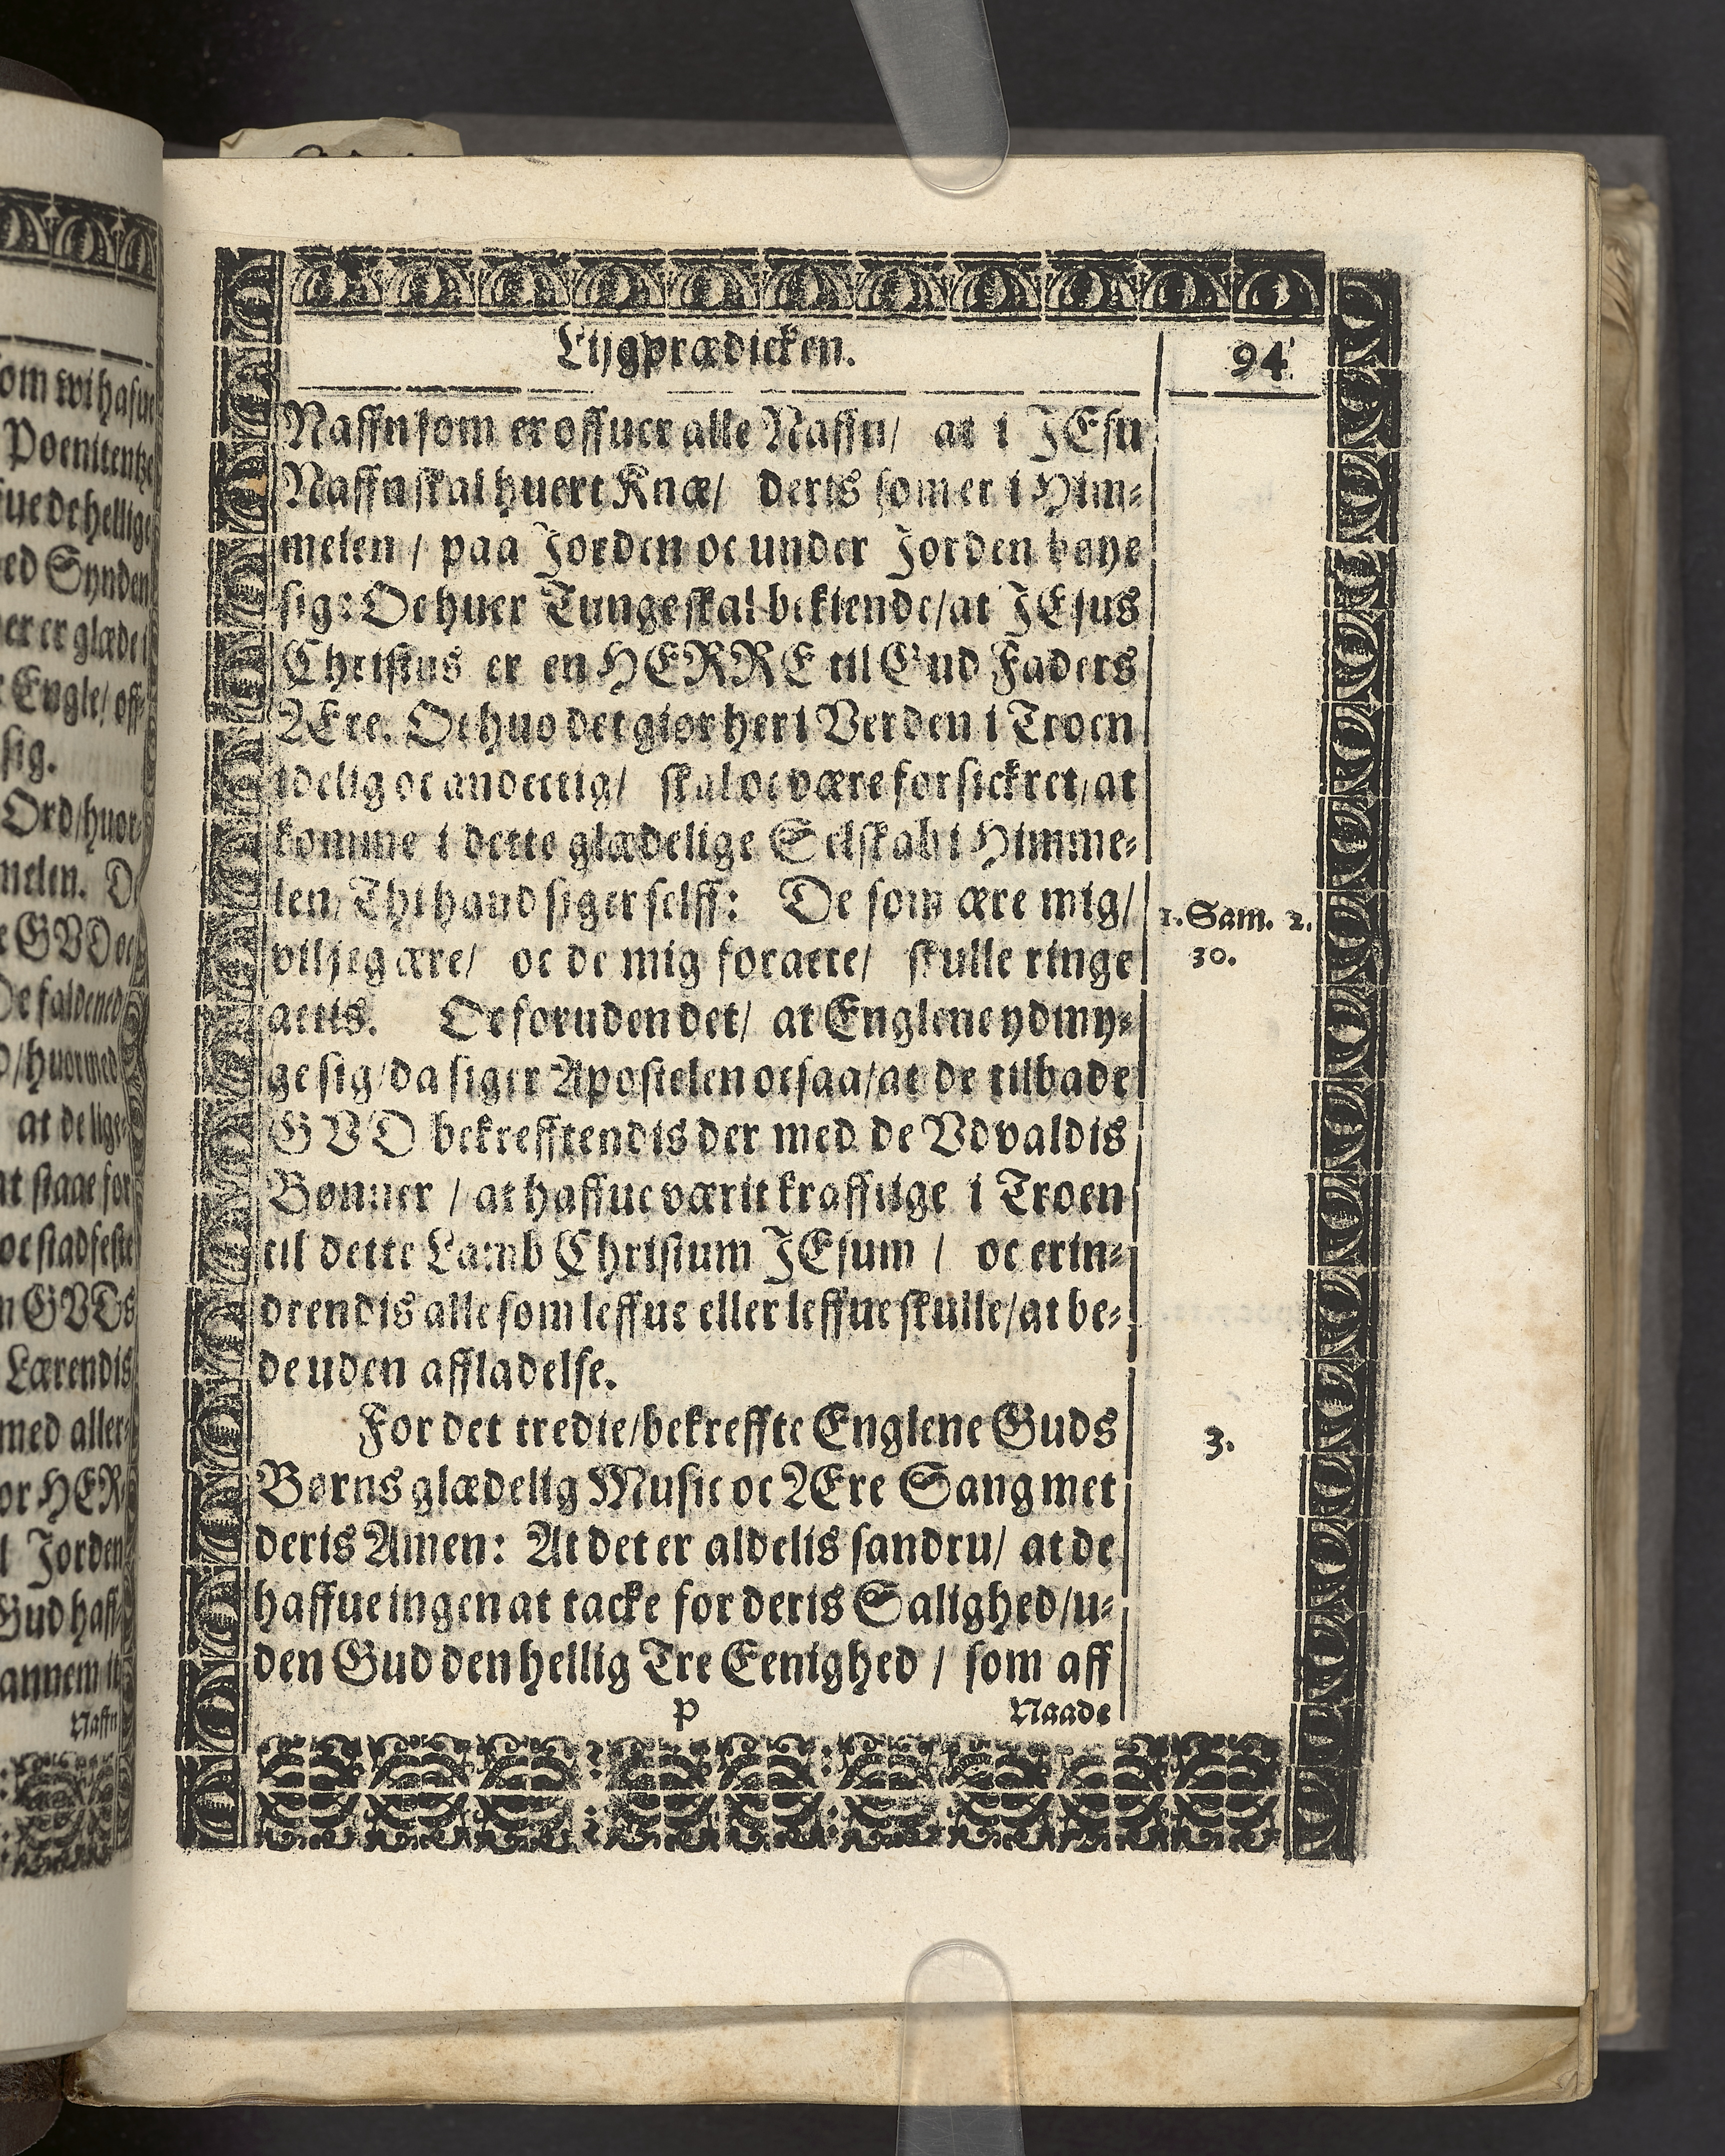 Lijgprædicken.
94
Naffn som er offuer alle Naffn/ at i JEsu
Naffn skal huert Knæ/ deris som er i Him⸗
melen / paa Jorden oc under Jorden bøye
sig: Oc huer Tunge skal bekiende/at JEsus
Christus er en HERRE til Gud Faders
Ære. Oc huo det giør her i Verden i Troen
idelig oc andectig/ skal oc være forsickret/at
komme i dette glædelige Selskab i Himme⸗
len/ Thi hand siger selff: De som ære mig/
vil jeg ære/ oc de mig foracte/ skulle ringe
actis. Oc foruden det/ at Englene ydmy⸗
ge sig/da siger Apostelen ocsaa/at de tilbade
GVD bekrefftendis der med de Vdvaldis
Bønner / at haffue værit krafftige i Troen
til dette Lamb Christum JEsum / oc erin⸗
drendis alle som leffue eller leffue skulle/at be⸗
de uden affladelse.
For det tredie/bekreffte Englene Guds
Børns glædelig Music oc Ære Sang met
deris Amen: At det er aldelis sandru/ at de
haffue ingen at tacke for deris Salighed/u⸗
den Gud den hellig Tre Eenighed / som aff
P
Naade
1. Sam. 2.
30.
3.
om wi hafue
Poenitentze
fue de hellige
ed Synden
er er glæde i
Engle/ off⸗
sig.
Ord/huor⸗
melen. D
e GVD oc
De faldened
D/huormed
at de lige⸗
at staae for
oc stadfeste
n GVDs
Lærendis
med aller⸗
or HER⸗
l Jorden
Gud haff⸗
annem it
Naffn